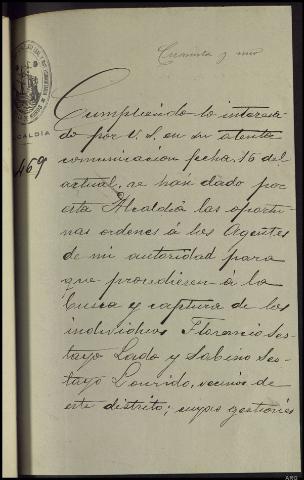 Cuarenta y uno
ALCALDIA
469
Cumpliendo lo interesa-
do por V. S. en su atenta
comunicacion fecha 16 del
actual, se han dado por
esta Alcaldia las oportu-
nas ordenes á los Agentes
de mi autoridad para
que procedieran á la
busca y captura de los
individuos Florencio Ses-
tayo Lado y Sabino Ses-
tayo Lourido, vecinos de
este distrito; cuyas gestiones